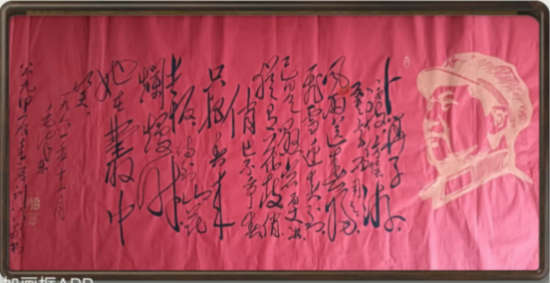 卜算子 咏
风雨送春归
飞雪迎春到
已是悬崖百丈冰
犹有花枝俏
俏也不争春
只把春来
报 待到山花
烂漫时
她在丛中
笑
一九六一年十二月
毛泽东
公元甲
加画框APP